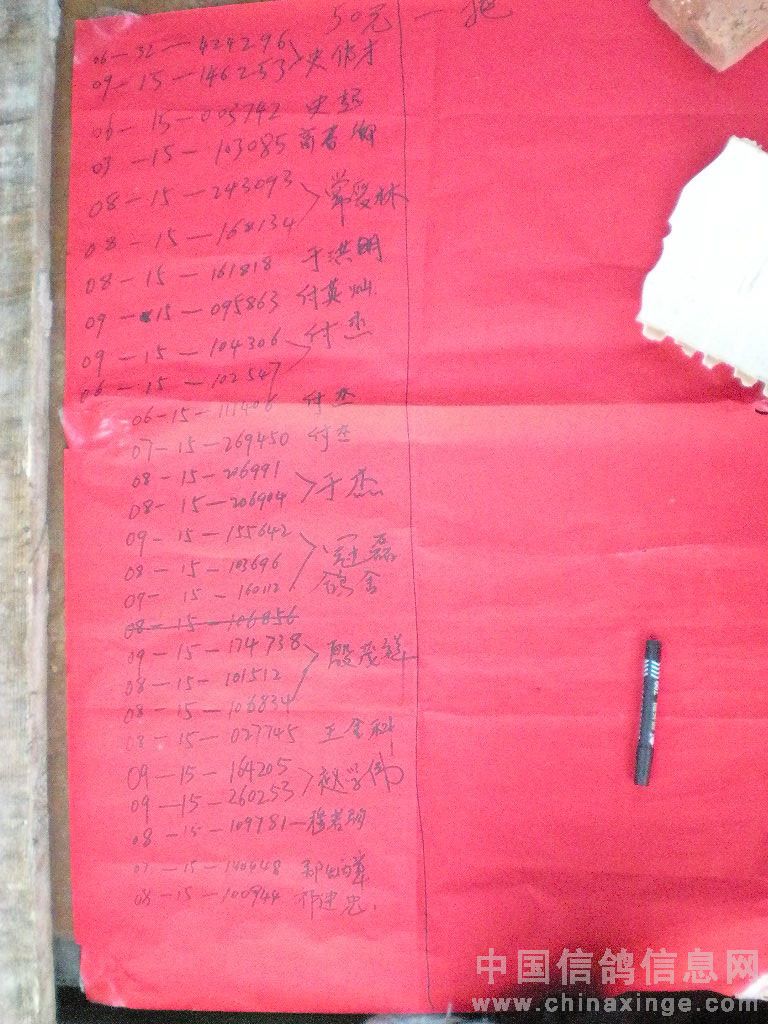 50元一拖
06-32-424296
09-15-146253
06-15-003742
03-15-103085
08-15-243093
08-15-168134
08-15-161818 于洪明
09-15-095863 付英灿
09-15-104306 付杰
06-15-102547
06-15-111406 付杰
07-15-269450 付杰
08-15-206991
08-15-206904 于杰
09-15-155642
08-15-103696 冠磊
09-15-160112 鸽舍
08-15-106856
09-15-174738
08-15-101512 殷茂祥
08-15-106834
08-15-027745 王全科
09-15-164205
09-15-260253 赵学伟
08-15-109781
07-15-140448
08-15-100944
中国信鸽信息网
www.chinaxinge.com